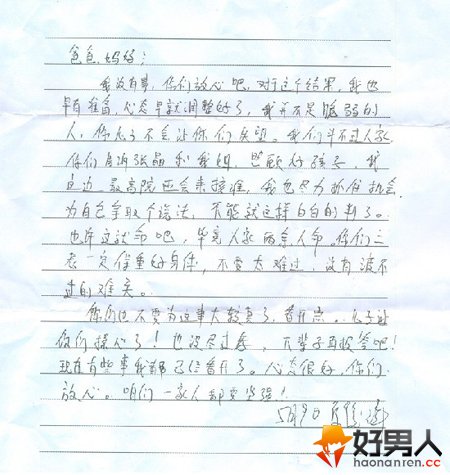 爸爸、妈妈：
我没有事，你们放心吧。对于这个结果，我也
早有准备，心态早就调整好了，我并不是脆弱的
人，你儿子不会让你们失望。我们斗不过人家
你们自有张晶和我姐，照顾好孩子，我
这边最高院还会来核准，我也尽力抓住机会
为自己争取个说法，不能就这样白白的判了。
也许这就命吧，毕竟人家两条人命。你们三
老一定保重好身体，不要太难过，没有渡不
过的难关。
你们也不要为这事太较真了，看开点。儿子让
你们操心了！也没尽过孝，下辈子再报答吧！
现在有些事我都已经看开了。心态很好，你们
放心。咱们一家人都要坚强！
5月9日 夏俊峰
好男人
haonanren.cc